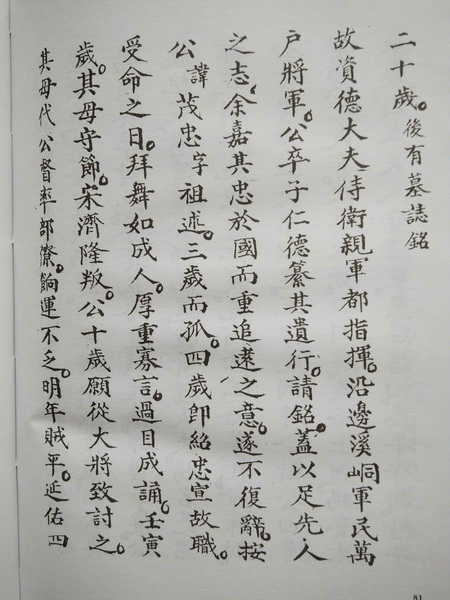 二十歲。後有墓誌銘
故資德大夫侍衛親軍都指揮。沿邊溪峒軍民萬
户將軍。公卒子仁德纂其遺行。請銘。蓋以足先人
之志。余嘉其忠於國而重追遠之意。遂不復辭。按
公諱茂忠字祖述。三歲而孤。四歲即紹忠宣故職。
受命之日。拜舞如成人。厚重寡言。過目成誦。壬寅
歲。其母守節。宋濟隆叛。公十歲願從大將致討之。
其母代公督率部僚。餉運不乏。明年賊平。延佑四
81